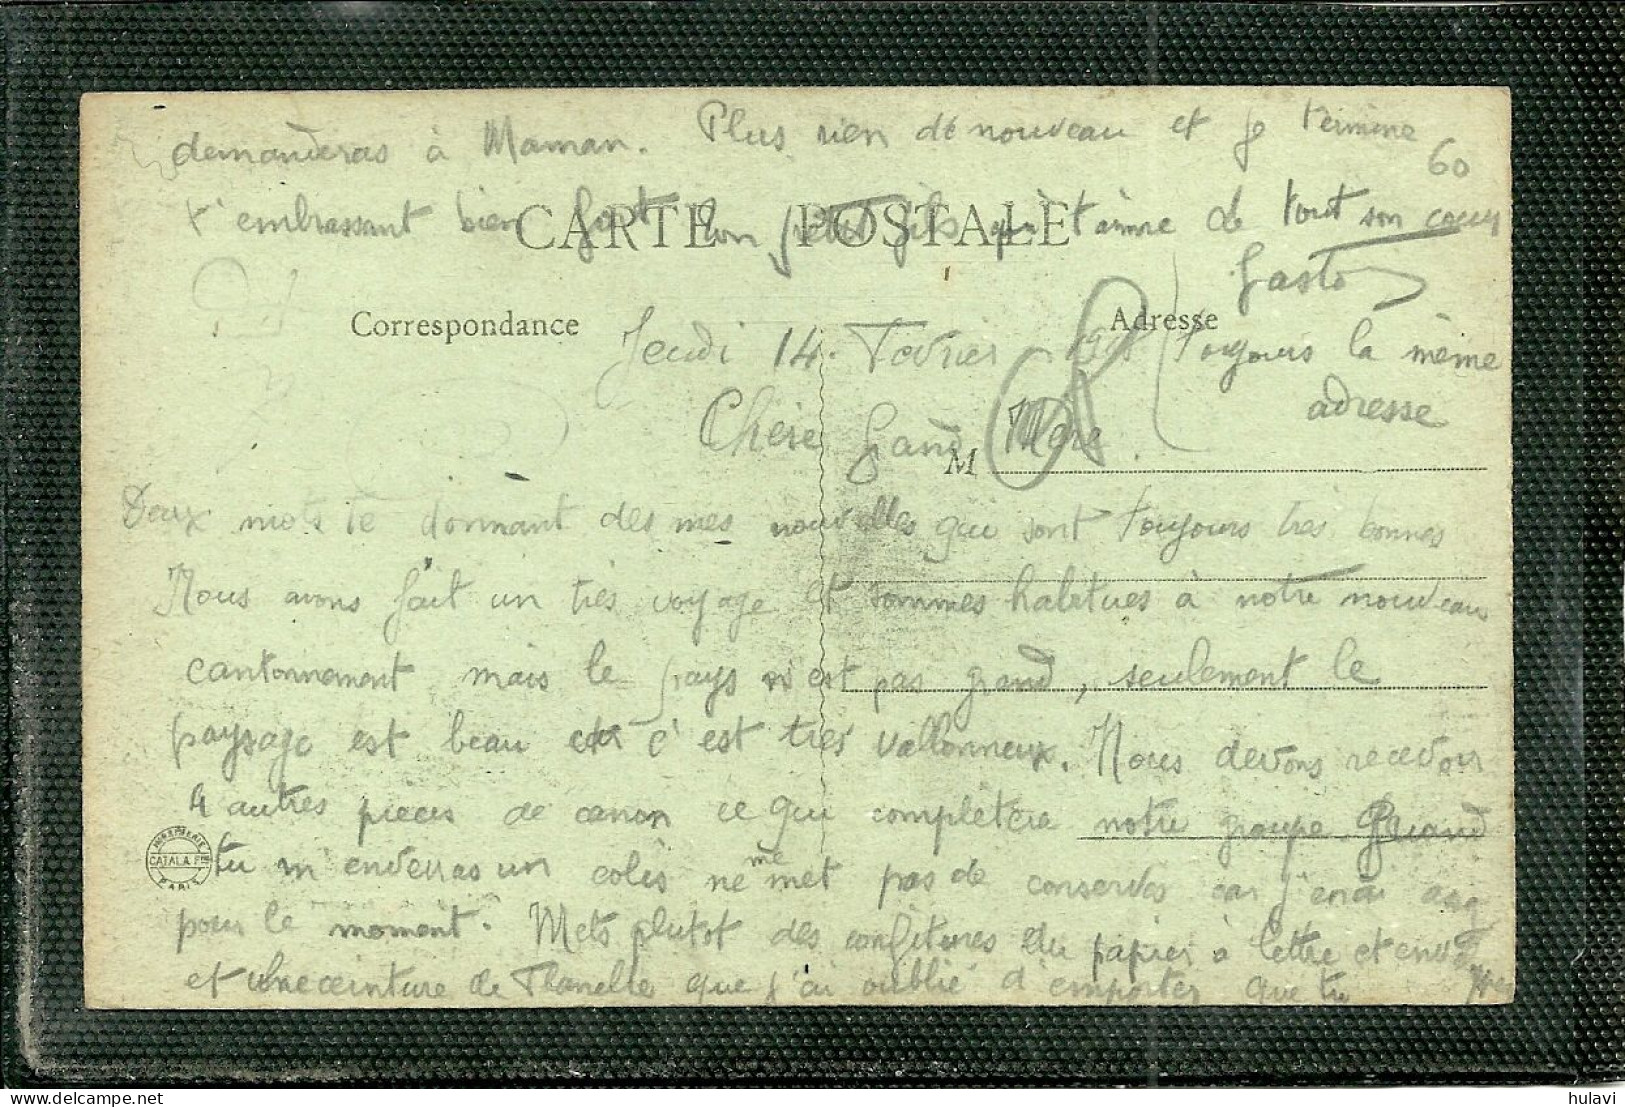 demanderas à Maman. Plus rien de nouveau et je termine
60
t'embrassant bien fort ton petit fils qui t'aime de tout son coeur
CARTE POSTALE
Gaston
Correspondance
Adresse
Jeudi 14 Fevrier 1918
toujours la même
adresse
Chère Grand Mère
M
Deux mots te donnant des mes nouvelles qui sont toujours très bonnes
Nous avons fait un très voyage et sommes habitues à notre nouveau
cantonnement mais le pays n'est pas grand, seulement le
paysage est beau et c'est très vallonneux. Nous devons recevoir
4 autres pièces de canon ce qui complètera notre groupe Quand
IMPRIMERIE CATALA FRES PARIS
tu m'enverras un colis ne me met pas de conserves car j'en ai
pour le moment. Mets plutot des confitures du papier à lettre et env
et une ceinture de Flanelle que j'ai oublié d'emporter que tu
hulavi